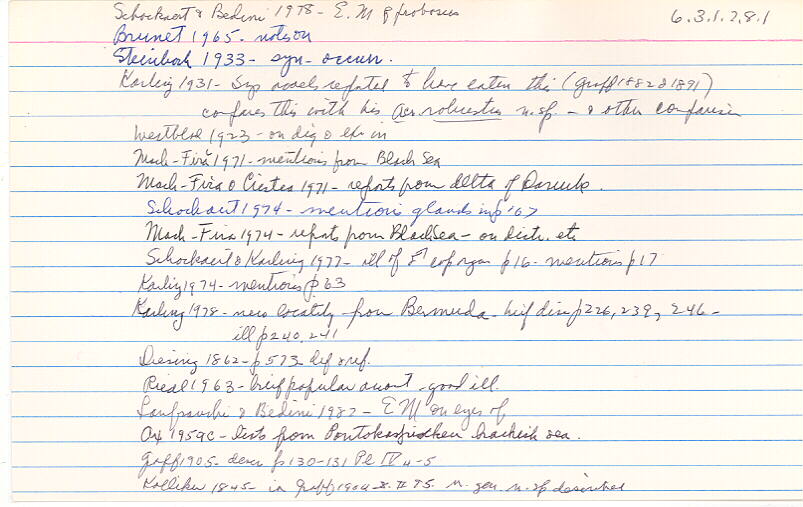 Schockaert & Bedini 1978 - E.M of proboscis 6.3.1.2.8.1
Brunet 1965 - notes on
Steinbock 1933 - syn - occurr.
Karling 1931 - Says models refuted to have eaten this (Graff 1882 & 1891)
compares this with his Acr. robustus n.sp. - & other comparison
Westblad 1923 - on dig & ex in
Mack-Fira 1971 - mentions from Black Sea
Mack-Fira & Cristea 1971 - reports from delta of Danube.
Schockaert 1974 - mentions glands in p 67
Mack-Fira 1974 - reports from Black Sea - on distr. etc
Schockaert & Karling 1977 - ill of ♂ cop organ p16 - mentions p17
Karling 1974 - mentions p 63
Karling 1978 - new locality from Bermuda - brief disc p226, 239, 246 -
ill p 240, 241
Diesing 1862 - p 573 def & ref.
Riedl 1963 - brief popular account - good ill.
Lanfranchi & Bedini 1982 - EM on eyes of
Ax 1959c - lists from Pontokaspischen brackish sea.
Graff 1905 - descr p130-131 Pl IV 4-5
Kolliker 1845 - in Graff 1904-8. II 75. n. gen. n. sp described